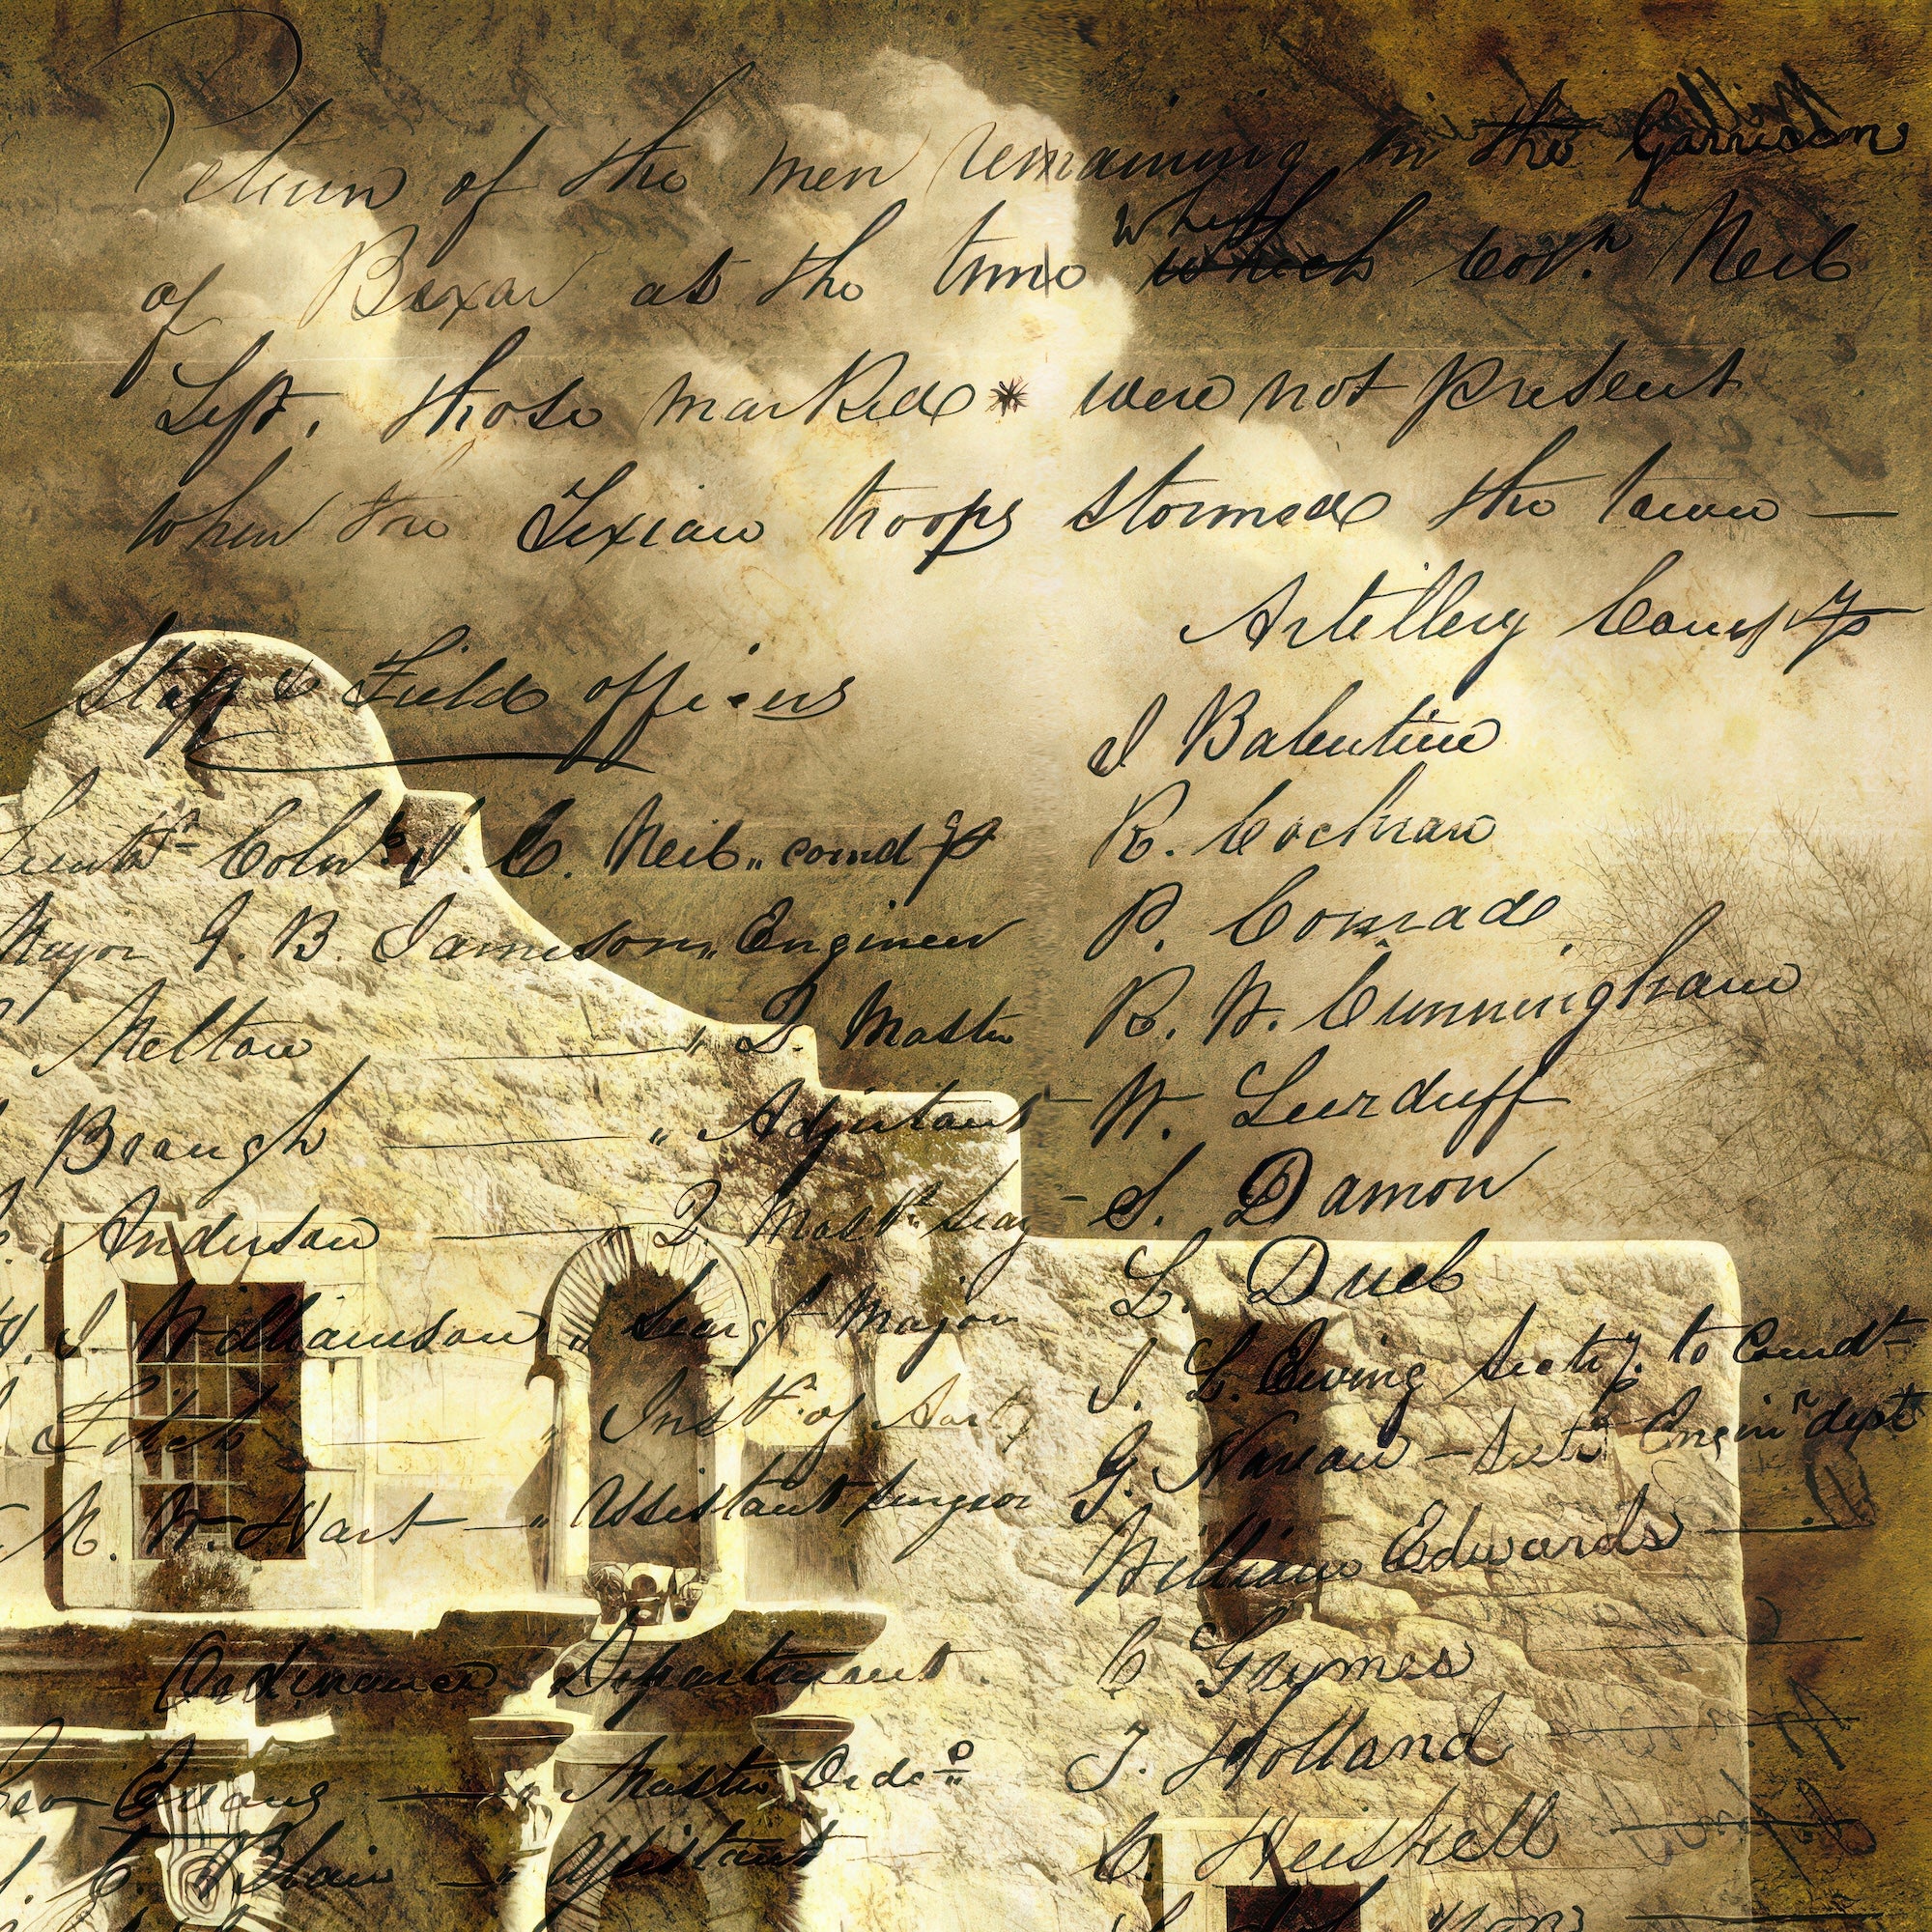 Return of the men remaining in the Garrison
of Bexar at the time when which Col. Neil
Left, those marked * were not present
when the Texian troops stormed the town —
Staff & Field officers
Lieutt Coln J. C. Neil " comdg
Major G. B. Jameson " Engineer
Melton — " Q. Master
Baugh — " Adjutant
Anderson — Q. Mastr Searg
H. J. Williamson " Seargt Major
— " Inst. of Art
M. W. Hart — " Assistant Surgeon
Ordinance Department.
Geo Evans — " Master Ord
S. C. Blair — " Assistant
Artillery
J Balentine
R. Cochran
P. Conrad
R. W. Cunningham
W.
S. Damon
L. Duel
J. L. Ewing Secty. to Comdt
G. — Secty Enginr dept
William Edwards
C Grymes
J. Holland
C. Heiskell